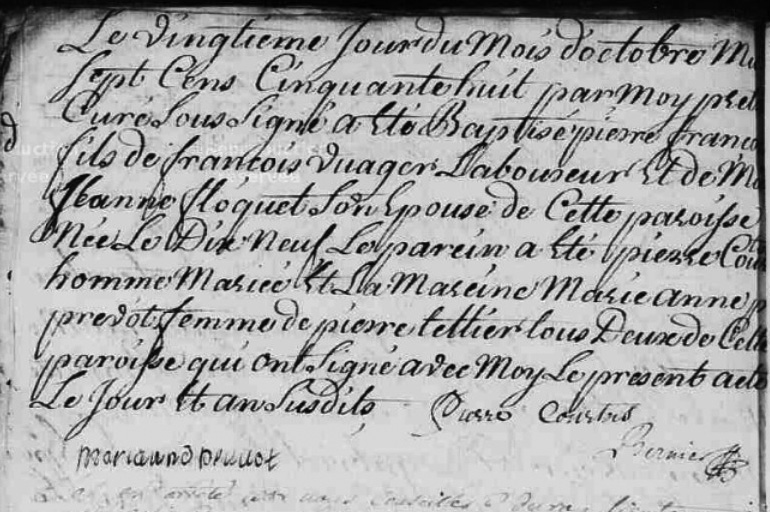 Le vingtieme Jour du Mois d'octobre M
Sept Cens Cinquante huit par Moy
Curé Sous Signé a Eté Baptisé pierre franco
fils de francois vuager Laboureur Et de
Jeanne floquet Son Epouse de Cette paroisse
Née Le Dix Neuf Le parein a Eté pierre Cou
homme Mariée Et La Mareine Marie anne p
prevot femme de pierre tellier tous Deux de Cette
paroisse qui ont Signé avec Moy Le present acte
Le Jour Et an Susdits Pierre Courtois
Bernier